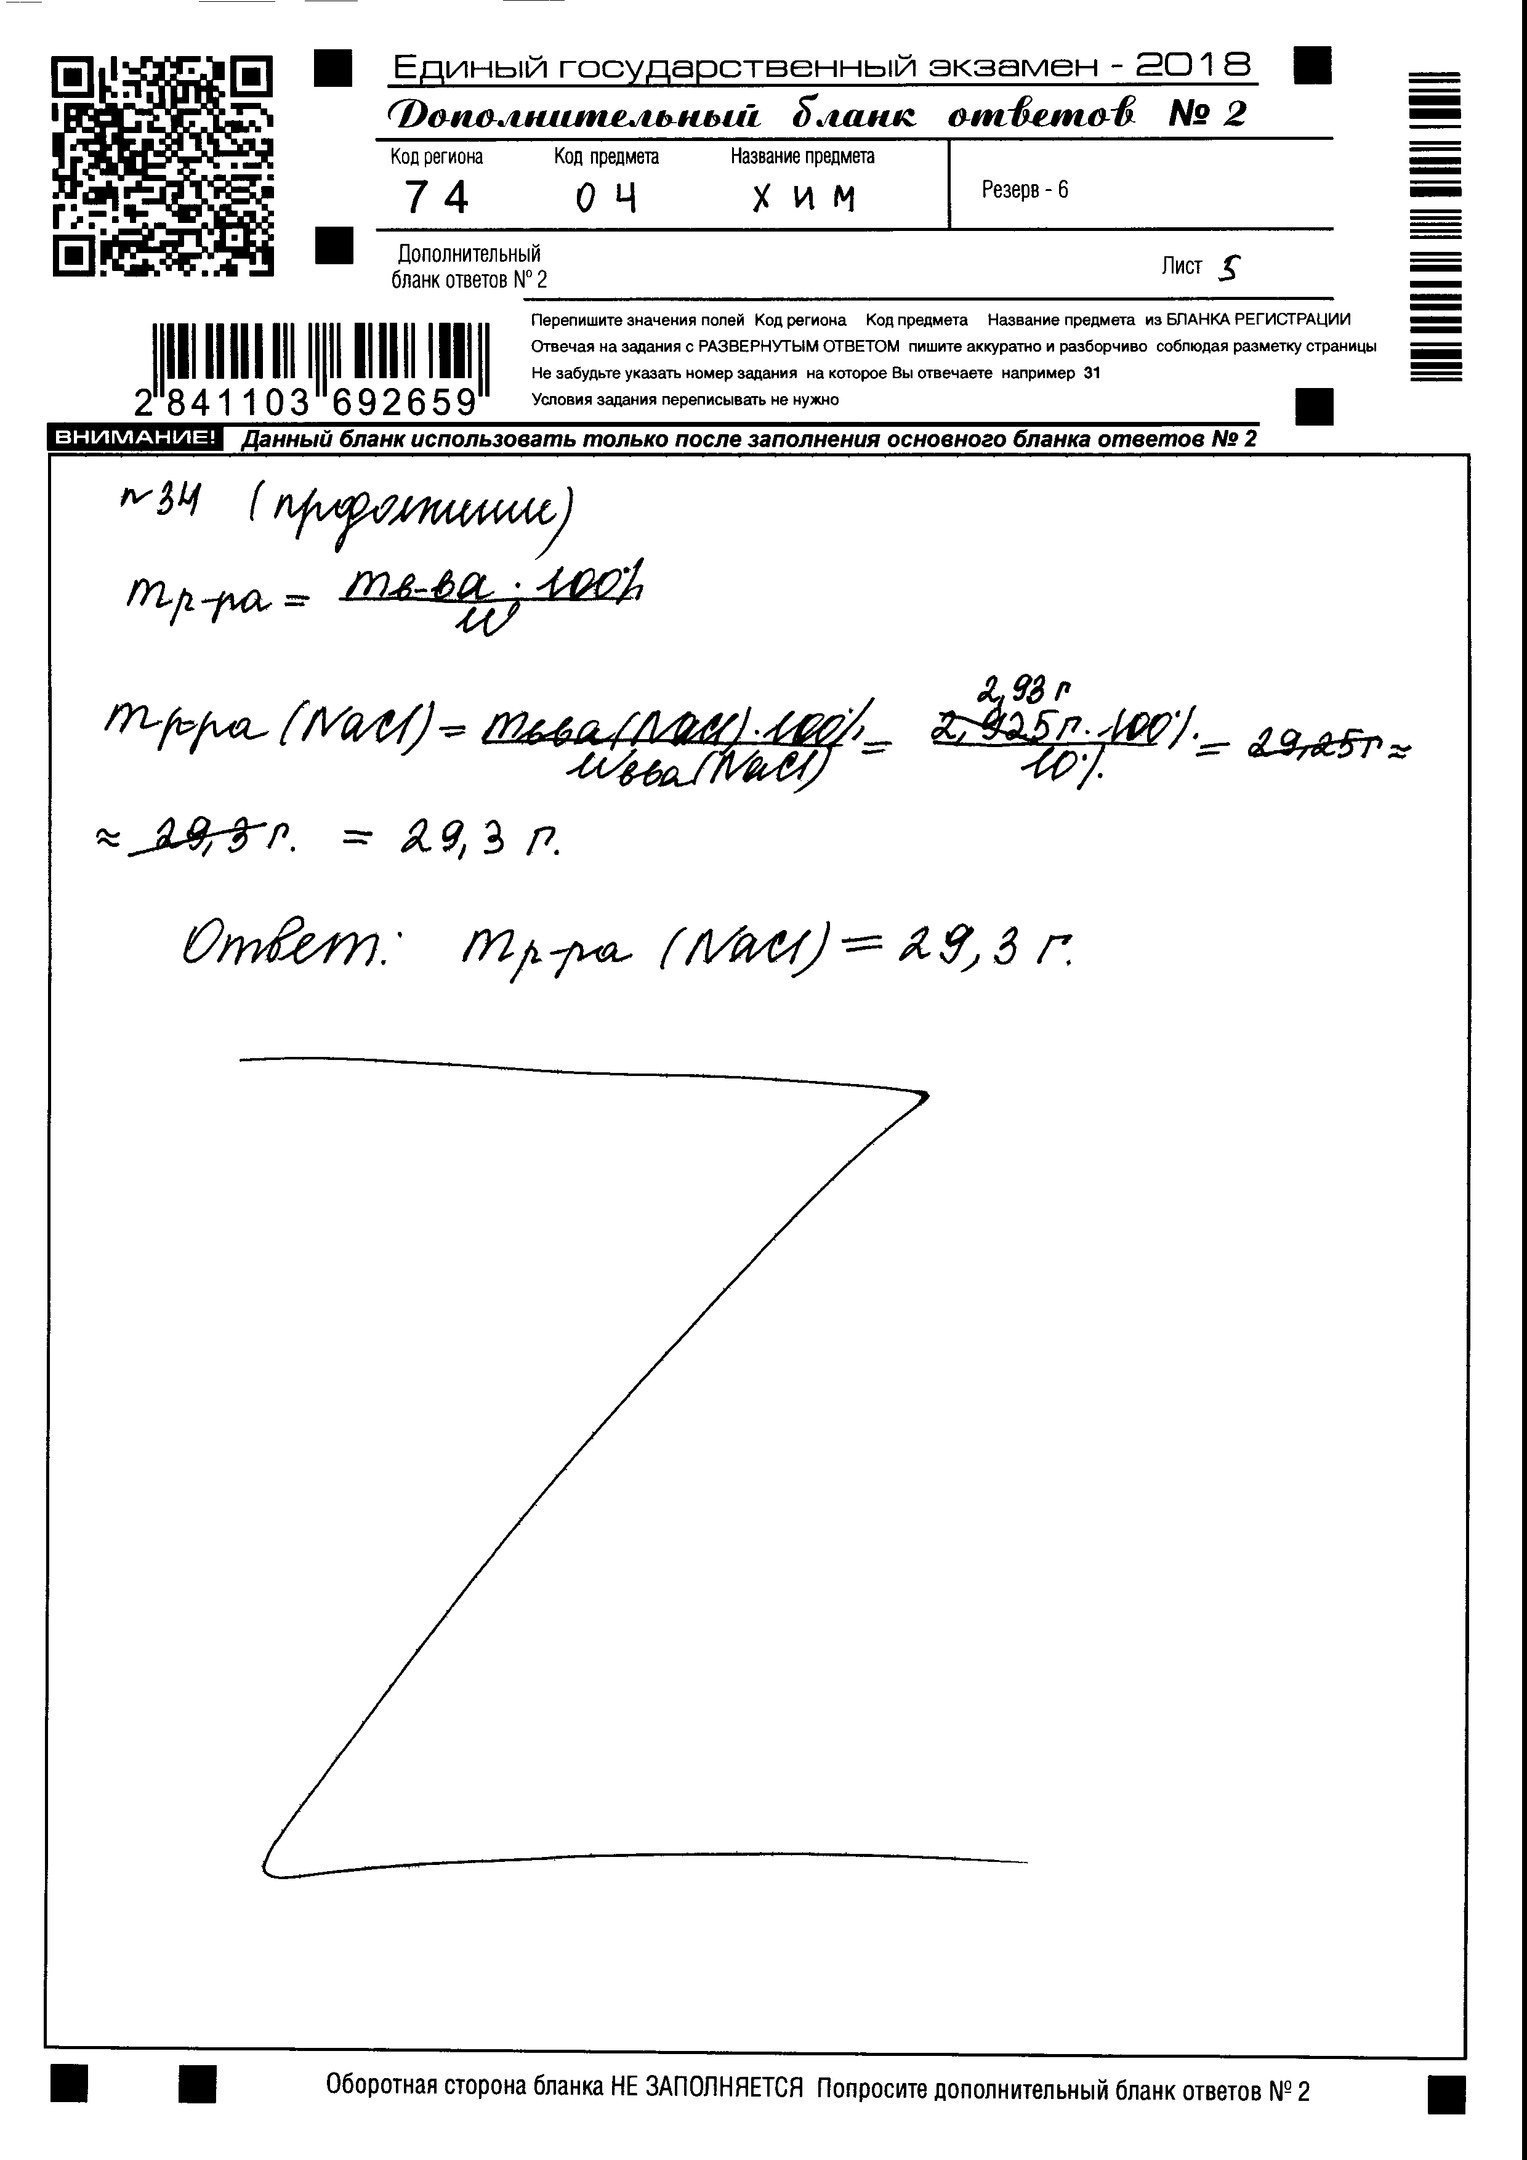 Единый государственный экзамен - 2018
Дополнительный бланк ответов № 2
Код региона Код предмета Название предмета
74 04 ХИМ
Резерв - 6
Дополнительный
бланк ответов № 2
Лист 5
Перепишите значения полей Код региона Код предмета Название предмета из БЛАНКА РЕГИСТРАЦИИ
Отвечая на задания с РАЗВЕРНУТЫМ ОТВЕТОМ пишите аккуратно и разборчиво соблюдая разметку страницы
Не забудьте указать номер задания на которое Вы отвечаете например 31
Условия задания переписывать не нужно
2 841103 692659
ВНИМАНИЕ! Данный бланк использовать только после заполнения основного бланка ответов № 2
№34 (продолжение)
mр-ра = mв-ва · 100% / w
2,93 г
mр-ра (NaCl) = mвва(NaCl) · 100% / wвва(NaCl) = 2,925 г · 100% / 10% = 29,25 г ≈
≈ 29,3 г. = 29,3 г.
Ответ: mр-ра (NaCl) = 29,3 г.
Оборотная сторона бланка НЕ ЗАПОЛНЯЕТСЯ Попросите дополнительный бланк ответов № 2